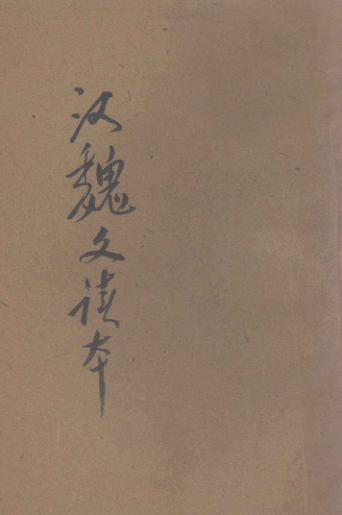 汉魏文读本